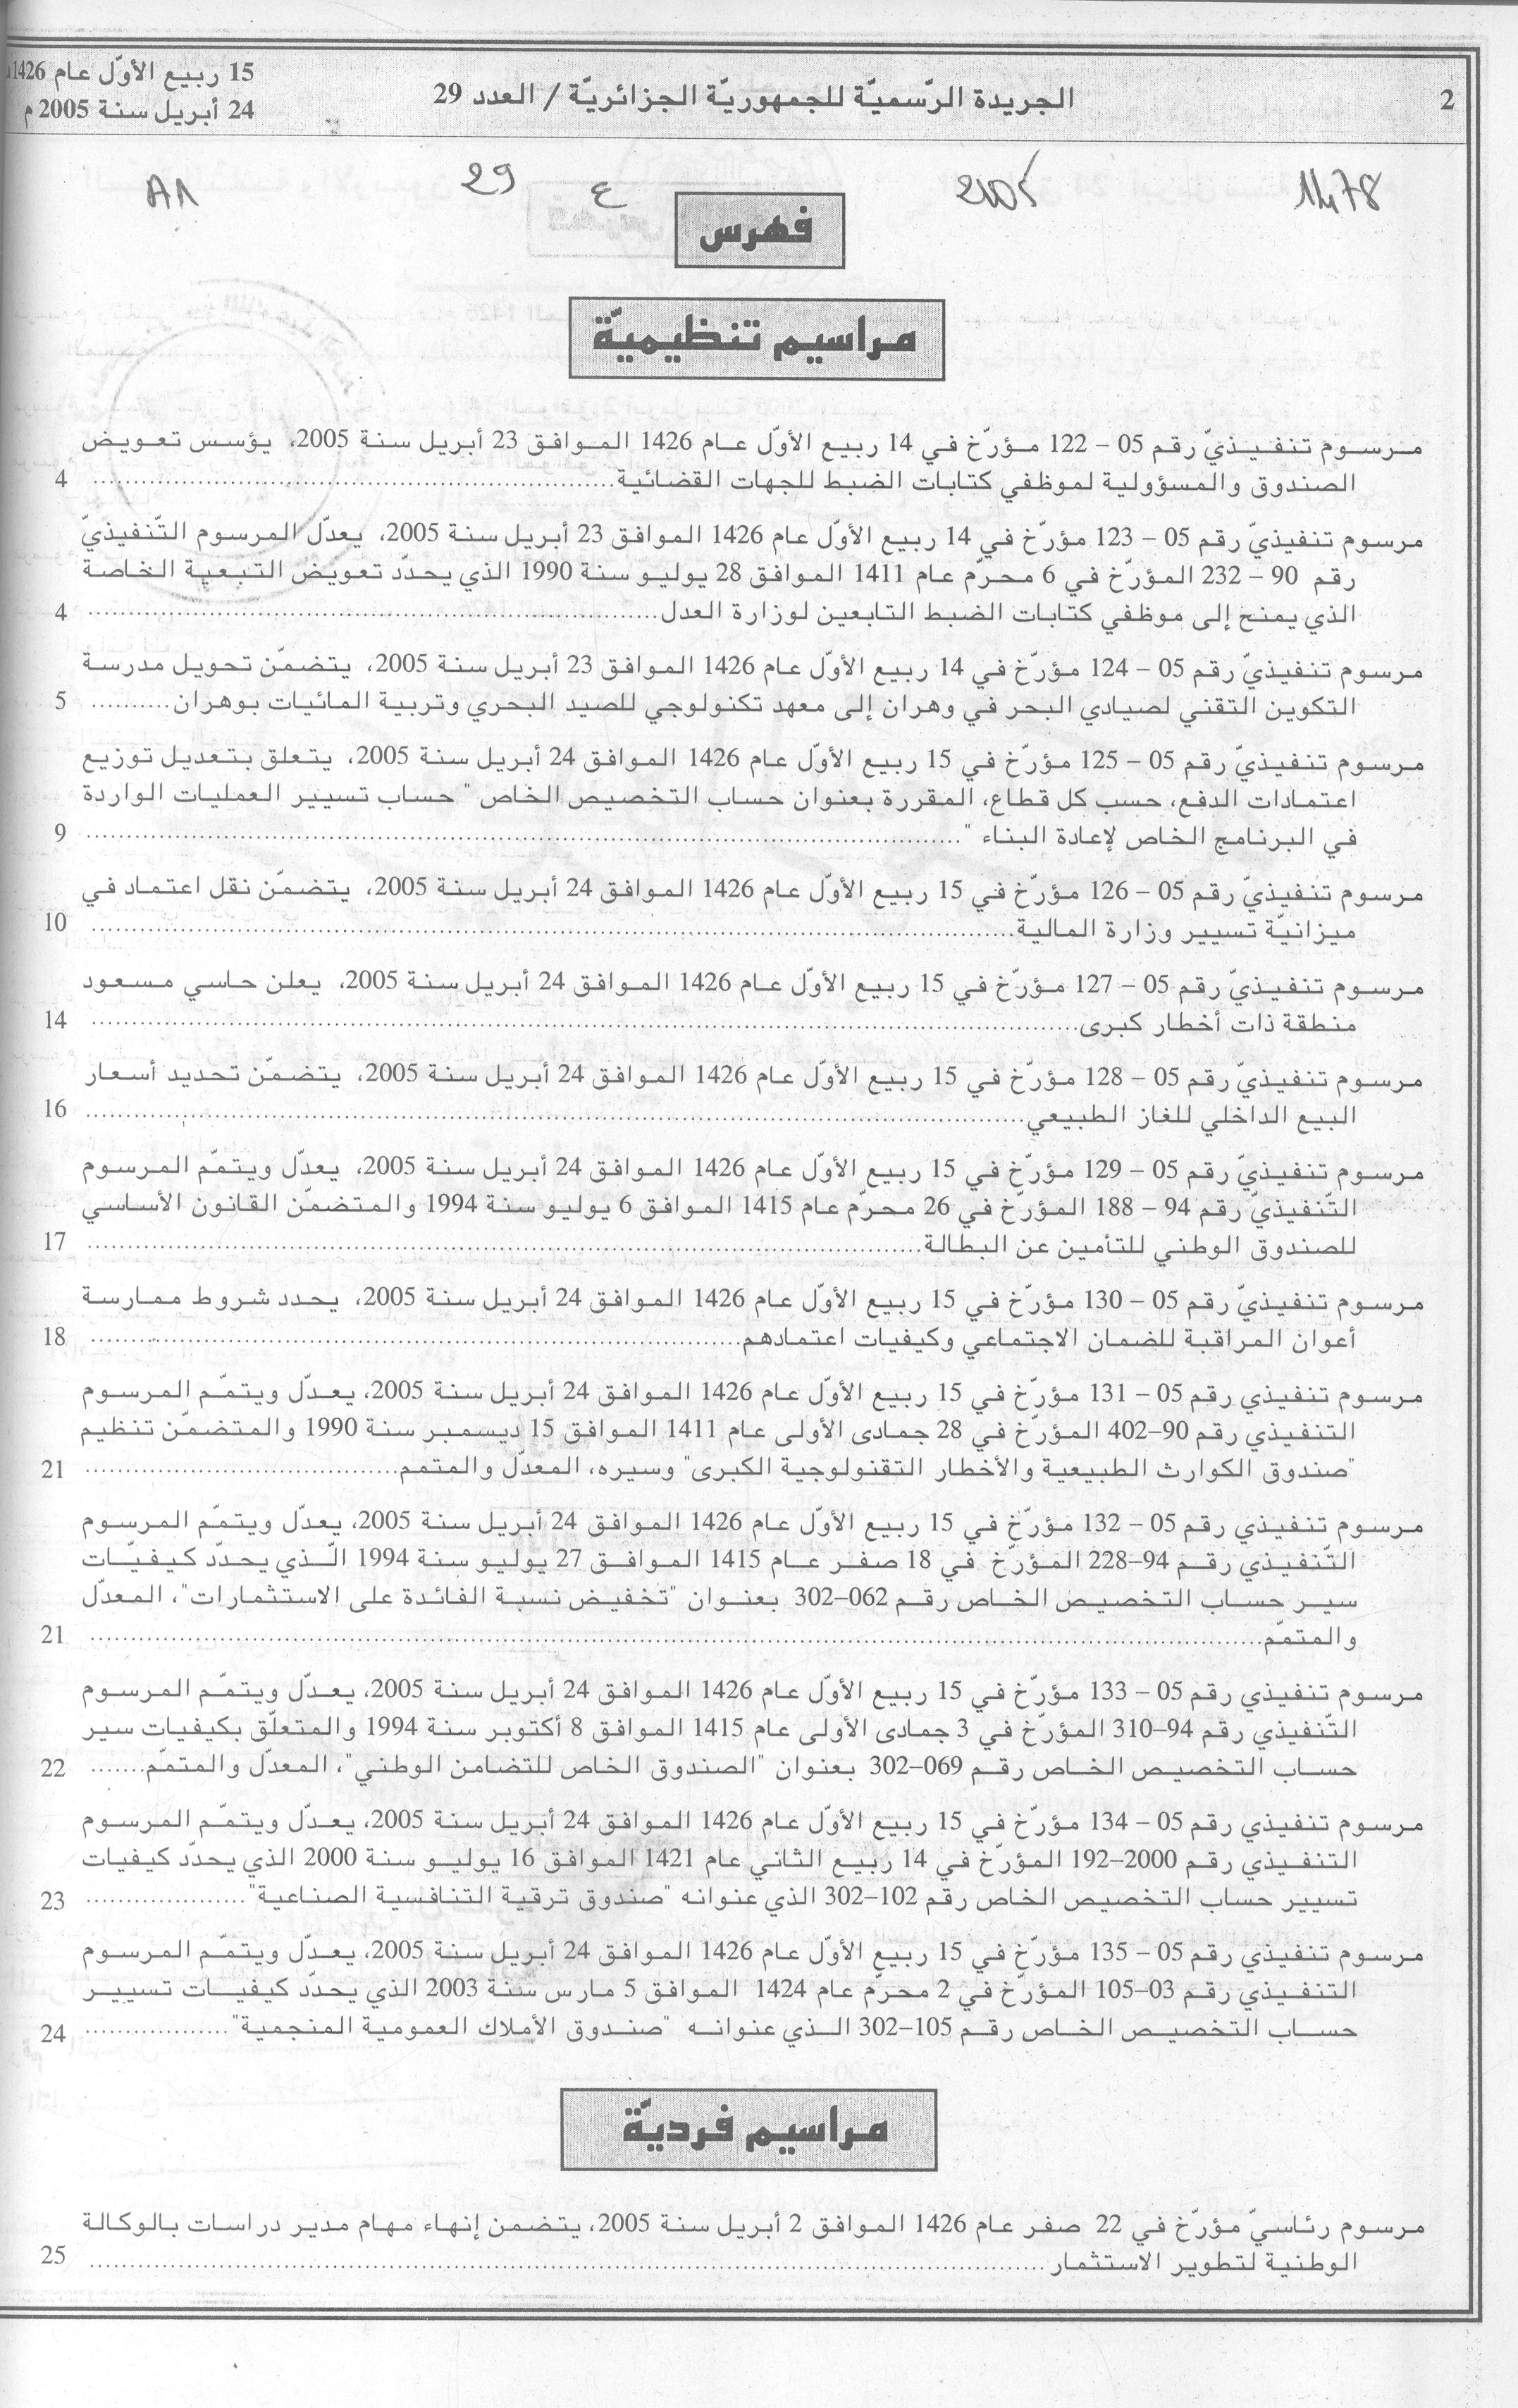 2
الجريدة الرّسميّة للجمهوريّة الجزائريّة / العدد 29
15 ربيع الأوّل عام 1426
24 أبريل سنة 2005 م
1478
2005
ع
29
A1
فهرس
مراسيم تنظيميّة
مرسوم تنفيذيّ رقم 05 – 122 مؤرّخ في 14 ربيع الأوّل عام 1426 الموافق 23 أبريل سنة 2005، يؤسس تعويض
الصندوق والمسؤولية لموظفي كتابات الضبط للجهات القضائية .......... 4
مرسوم تنفيذيّ رقم 05 – 123 مؤرّخ في 14 ربيع الأوّل عام 1426 الموافق 23 أبريل سنة 2005، يعدّل المرسوم التّنفيذيّ
رقم 90 – 232 المؤرّخ في 6 محرّم عام 1411 الموافق 28 يوليو سنة 1990 الذي يحدّد تعويض التبعية الخاصة
الذي يمنح إلى موظفي كتابات الضبط التابعين لوزارة العدل .......... 4
مرسوم تنفيذيّ رقم 05 – 124 مؤرّخ في 14 ربيع الأوّل عام 1426 الموافق 23 أبريل سنة 2005، يتضمّن تحويل مدرسة
التكوين التقني لصيادي البحر في وهران إلى معهد تكنولوجي للصيد البحري وتربية المائيات بوهران .......... 5
مرسوم تنفيذيّ رقم 05 – 125 مؤرّخ في 15 ربيع الأوّل عام 1426 الموافق 24 أبريل سنة 2005، يتعلق بتعديل توزيع
اعتمادات الدفع، حسب كل قطاع، المقررة بعنوان حساب التخصيص الخاص " حساب تسيير العمليات الواردة
في البرنامج الخاص لإعادة البناء " .......... 9
مرسوم تنفيذيّ رقم 05 – 126 مؤرّخ في 15 ربيع الأوّل عام 1426 الموافق 24 أبريل سنة 2005، يتضمّن نقل اعتماد في
ميزانيّة تسيير وزارة المالية .......... 10
مرسوم تنفيذيّ رقم 05 – 127 مؤرّخ في 15 ربيع الأوّل عام 1426 الموافق 24 أبريل سنة 2005، يعلن حاسي مسعود
منطقة ذات أخطار كبرى .......... 14
مرسوم تنفيذيّ رقم 05 – 128 مؤرّخ في 15 ربيع الأوّل عام 1426 الموافق 24 أبريل سنة 2005، يتضمّن تحديد أسعار
البيع الداخلي للغاز الطبيعي .......... 16
مرسوم تنفيذيّ رقم 05 – 129 مؤرّخ في 15 ربيع الأوّل عام 1426 الموافق 24 أبريل سنة 2005، يعدّل ويتمّم المرسوم
التّنفيذيّ رقم 94 – 188 المؤرّخ في 26 محرّم عام 1415 الموافق 6 يوليو سنة 1994 والمتضمّن القانون الأساسي
للصندوق الوطني للتأمين عن البطالة .......... 17
مرسوم تنفيذيّ رقم 05 – 130 مؤرّخ في 15 ربيع الأوّل عام 1426 الموافق 24 أبريل سنة 2005، يحدد شروط ممارسة
أعوان المراقبة للضمان الاجتماعي وكيفيات اعتمادهم .......... 18
مرسوم تنفيذي رقم 05 – 131 مؤرّخ في 15 ربيع الأوّل عام 1426 الموافق 24 أبريل سنة 2005، يعدّل ويتمّم المرسوم
التنفيذي رقم 90–402 المؤرّخ في 28 جمادى الأولى عام 1411 الموافق 15 ديسمبر سنة 1990 والمتضمّن تنظيم
"صندوق الكوارث الطبيعية والأخطار التقنولوجية الكبرى" وسيره، المعدّل والمتمم .......... 21
مرسوم تنفيذي رقم 05 – 132 مؤرّخ في 15 ربيع الأوّل عام 1426 الموافق 24 أبريل سنة 2005، يعدّل ويتمّم المرسوم
التّنفيذي رقم 94–228 المؤرّخ في 18 صفر عام 1415 الموافق 27 يوليو سنة 1994 الّذي يحدّد كيفيّات
سير حساب التخصيص الخاص رقم 062–302 بعنوان "تخفيض نسبة الفائدة على الاستثمارات"، المعدّل
والمتمّم .......... 21
مرسوم تنفيذي رقم 05 – 133 مؤرّخ في 15 ربيع الأوّل عام 1426 الموافق 24 أبريل سنة 2005، يعدّل ويتمّم المرسوم
التّنفيذي رقم 94–310 المؤرّخ في 3 جمادى الأولى عام 1415 الموافق 8 أكتوبر سنة 1994 والمتعلّق بكيفيات سير
حساب التخصيص الخاص رقم 069–302 بعنوان "الصندوق الخاص للتضامن الوطني"، المعدّل والمتمّم .......... 22
مرسوم تنفيذي رقم 05 – 134 مؤرّخ في 15 ربيع الأوّل عام 1426 الموافق 24 أبريل سنة 2005، يعدّل ويتمّم المرسوم
التنفيذي رقم 2000–192 المؤرّخ في 14 ربيع الثاني عام 1421 الموافق 16 يوليو سنة 2000 الذي يحدّد كيفيات
تسيير حساب التخصيص الخاص رقم 102–302 الذي عنوانه "صندوق ترقية التنافسية الصناعية" .......... 23
مرسوم تنفيذي رقم 05 – 135 مؤرّخ في 15 ربيع الأوّل عام 1426 الموافق 24 أبريل سنة 2005، يعدّل ويتمّم المرسوم
التنفيذي رقم 03–105 المؤرّخ في 2 محرّم عام 1424 الموافق 5 مارس سنة 2003 الذي يحدّد كيفيات تسيير
حساب التخصيص الخاص رقم 105–302 الذي عنوانه "صندوق الأملاك العمومية المنجمية" .......... 24
مراسيم فرديّة
مرسوم رئاسيّ مؤرّخ في 22 صفر عام 1426 الموافق 2 أبريل سنة 2005، يتضمن إنهاء مهام مدير دراسات بالوكالة
الوطنية لتطوير الاستثمار .......... 25